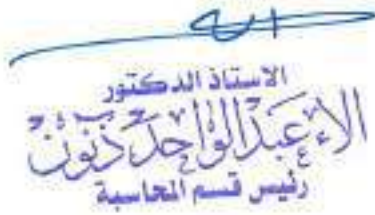 الاستاذ الدكتور
الاء عبدالواحد ذنون
رئيس قسم المحاسبة